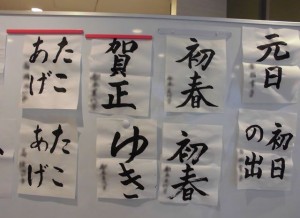 元日
初春
賀正
たこ
あげ
初日
の出
初春
ゆき
たこ
あげ